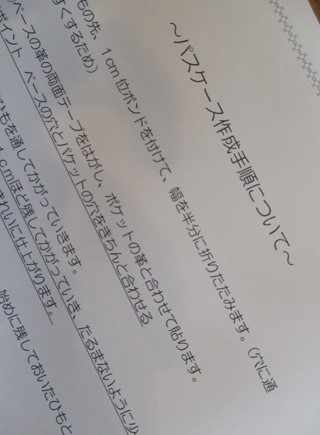 ～パスケース作成手順について～
もの先、１ｃｍ位ボンドを付けて、幅を半分に折りたたみます。（穴に通
すくするため））
ベースの革の両面テープをはがし、ポケットの革と合わせて貼ります。
ポイント　ベースの穴とパケットの穴をきちんと合わせる
ひもを通してかがっていきます。
１ｃｍほど残してかがっていき、たるまないように少
きれいに仕上がります。
始めに残しておいたひもと